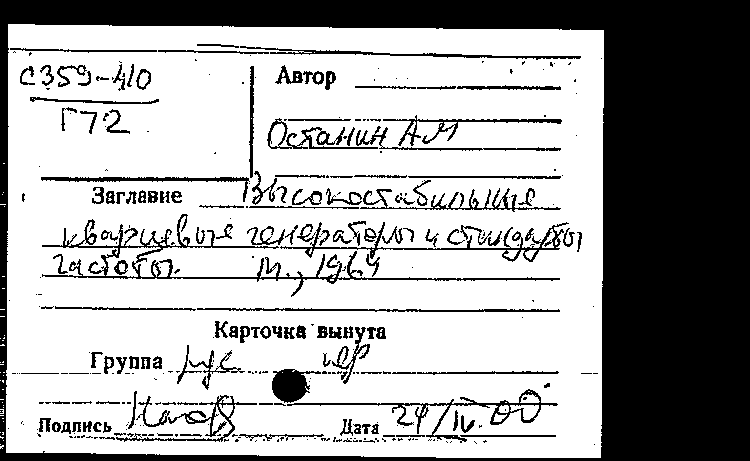 С359-410
Г72
Автор
Останин А.М
Заглавие Высокостабильные
кварцевые генераторы и стандарты
частоты. М., 1964
Карточка вынута
Группа рус
Подпись
Дата 24/IV.00